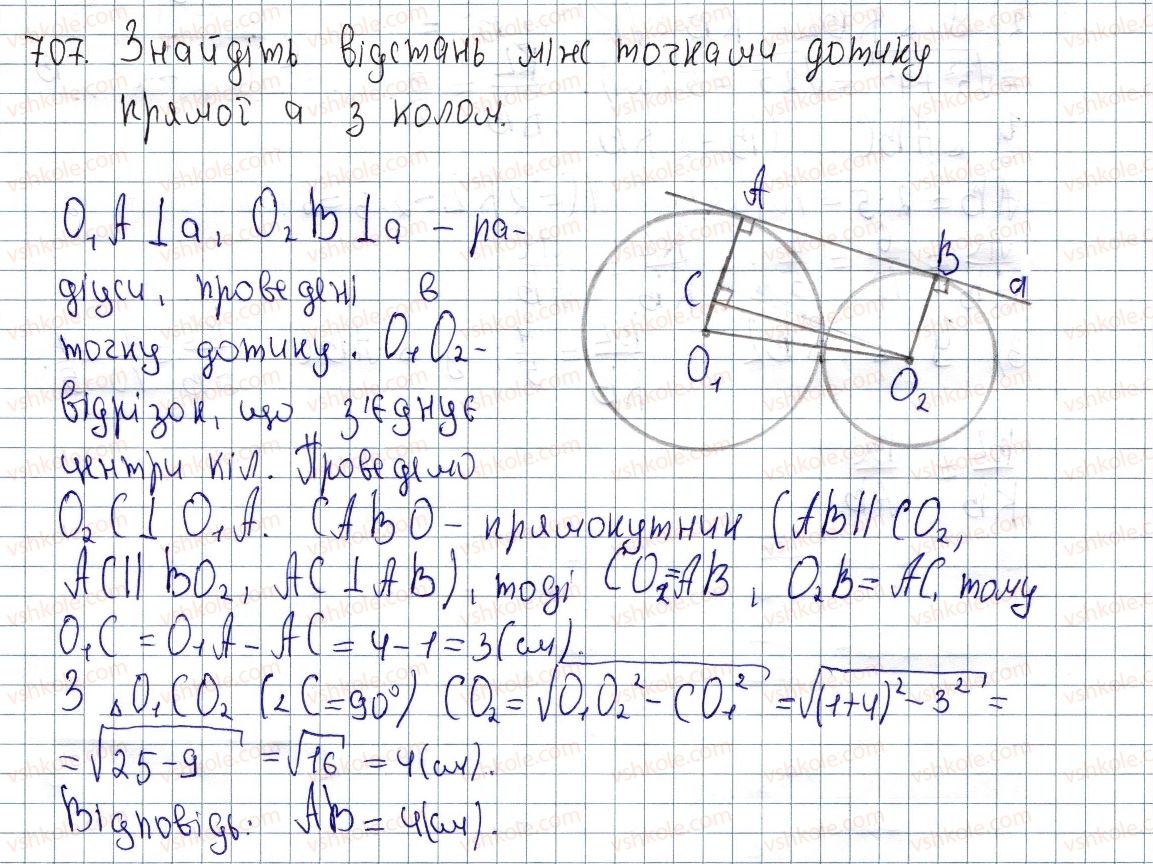 707. Знайдіть відстань між точками дотику
прямої а з колом.
O₁A⊥a, O₂B⊥a – ра-
діуси, проведені в
точку дотику. O₁O₂ –
відрізок, що з'єднує
центри кіл. Проведемо
O₂C⊥O₁A. CABO – прямокутник (AB||CO₂,
AC||BO₂, AC⊥AB), тоді CO₂=AB, O₂B=AC, тому
O₁C = O₁A – AC = 4 – 1 = 3(см).
З ΔO₁CO₂ (∠C=90°) CO₂ = √(O₁O₂² – CO₁²) = √((1+4)² – 3²) =
= √(25–9) = √16 = 4(см).
Відповідь: AB = 4(см).
A
B
a
C
O₁
O₂
vshkole.com